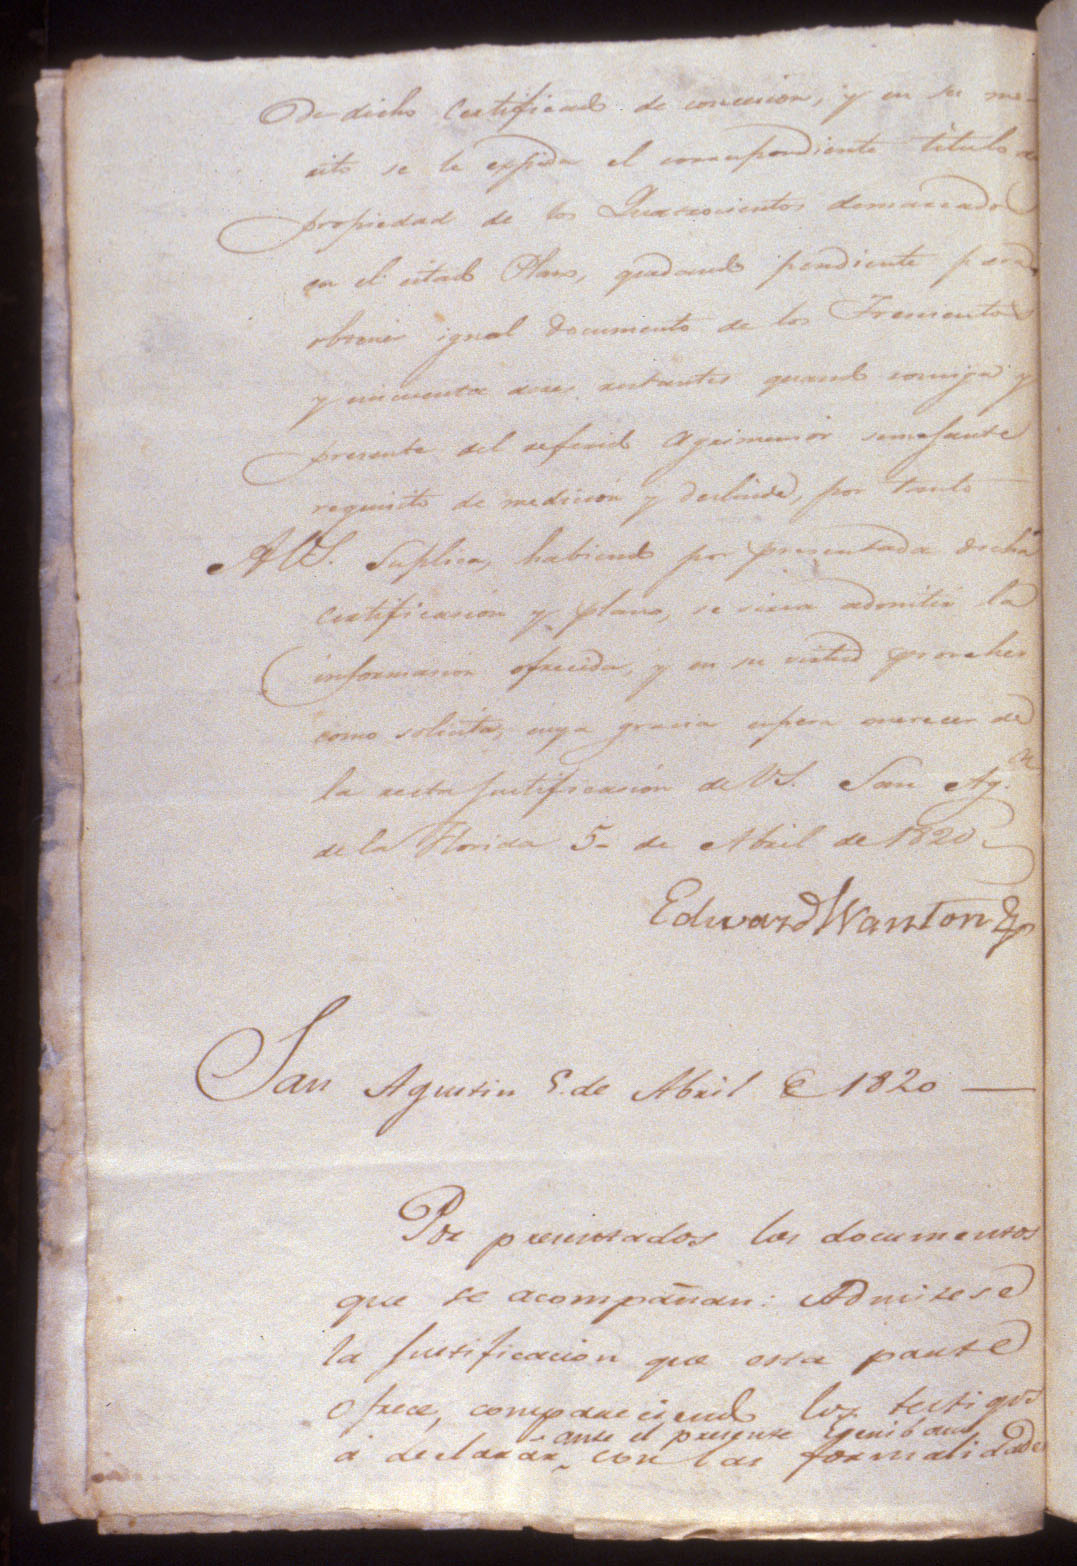 De dicho Certificado de concesion, y en su me-
rito se le expida el correspondiente titulo de
propiedad de los Quatrocientos demarcados
en el citado Plano, quedando pendiente para
obtener igual documento de los Trescientos
y cinquenta acres restantes quando consiga y
presente del referido Agrimensor semejante
requisito de medicion y deslinde, por tanto
A V.S. Suplica, habiendo por presentada dicha
certificasion y plano, se sirva admitir la
informasion ofrecida, y en su virtud proveher
como solicita, cuya gracia espera merecer de
la recta justificasion de V.S. San Agn.
de la Florida 5 de Abril de 1820
Edward Wanton
San Agustin 5 de Abril de 1820
Por presentados los documentos
que se acompañan: Admitese
la justificacion que esta parte
ofrece, compareciendo los testigos
ante el presente Escribano
á declarar con las formalidades